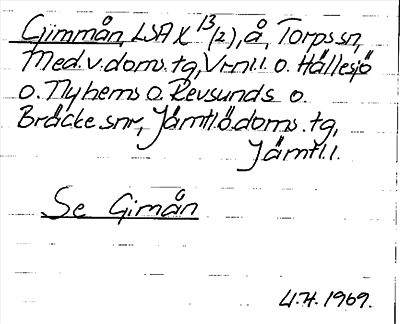 Gimmån, LSA X 13 (2), å, Torps sn,
Med.v.doms.tg, Vrnl.l. o. Hällesjö
o. Nyhems o. Revsunds o.
Bräcke snr, Jämtl.ö.doms.tg,
Jämtl.l.
Se Gimån
U.H. 1969.